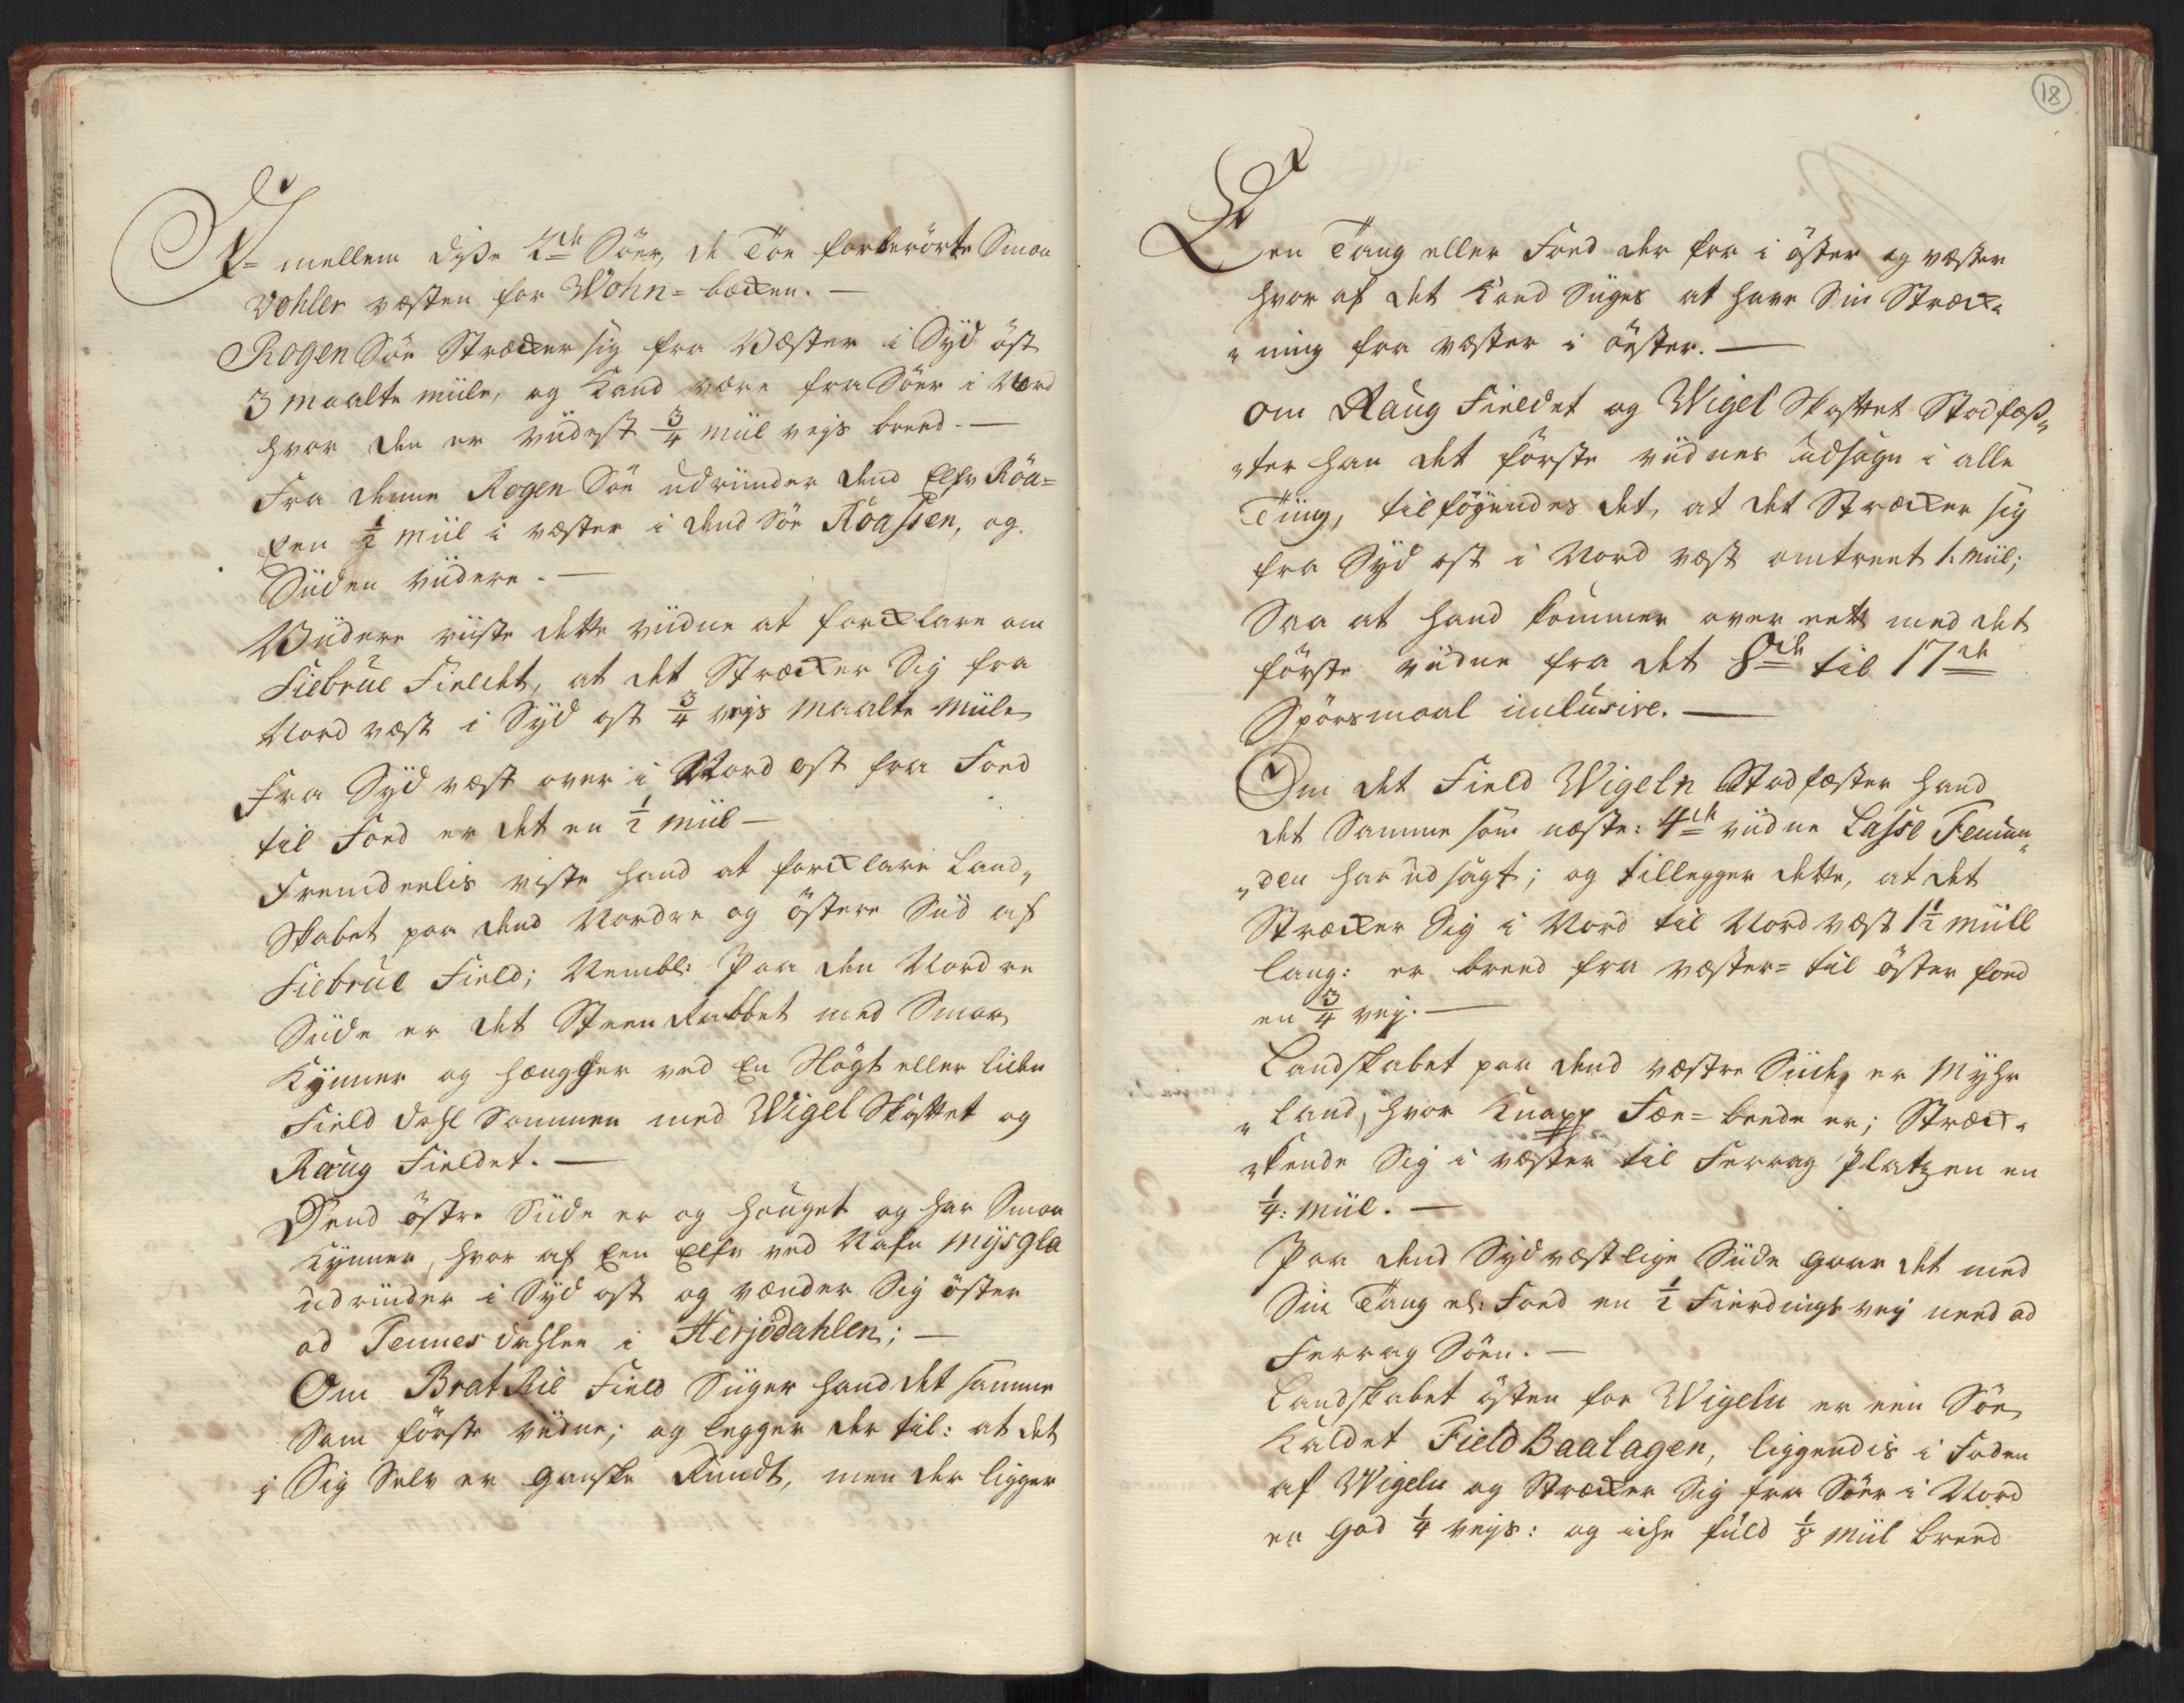 I- mellem diße 2de Söer, de Töe forberörte Smaa
Vohler væsten for Wöhn-bæcken. —
Rogen Söe Strækker sig fra Wæster i Syd öst
3 maalte miile, og Kand være fra Söer i Nord
hvor den er viidest 3/4 miil veys breed. —
Fra denne Rogen Söe udrinder dend Elfv Röa-
Een 1/2 miil i væster i dend Söe Röassen, og
Siiden viidere. —
Viidere viiste dette viidne at forklare om
Siebrue Fieldet, at det Strækker Sig fra
Nord væst i Syd ost 3/4 veys maalte miile
fra Syd væst over i Nord ost fra Foed
til Foed er det en 1/2 miil —
Fremdeelis viste hand at forklare Land„
Skabet paa dend Nordre og östere Siid af
Siebrue Field; Nembl: Paa den Nordre
Siide er det Steen Rabbet med Smaa
Kynner og hængher ved En Slögt eller lieden
Field dahl Sammen med Wigel Skaftet og
Raug Fieldet. —
Dend östre Siide er og hauget og har Smaa
Kynner, hvor af Een Elfv ved Nafn Mysgla
udrinder i Syd ost og vender Sig öster
ad Tennes dahlen i Herjedahlen; —
Om BratRiil Field Siiger hand det samme
Som förste viidne; og legger der til: at det
i Sig Selv er ganske Rundt, men der ligger
18
Een Tang eller Foed der fra i öster og væster
hvor af det Kand Siiges at have Sin Stræck„
„ning fra væster i öster. —
om Raug Fieldet og Wigel Skaftet Stadfæß„
„ter han det förste viidnes udsagn i alle
Tiing, tilföyendes det, at det Strækker sig
fra Syd ost i Nord væst omtrent 1. Miil;
Saa at hand kommer over eett med det
förste viidne fra det 8de til 17de
Spörsmaal inclusive. —
Om det Field Wigeln Stadfæster hand
det Samme som næste: 4de viidne Lasse Femun„
„den har udsagt; og tillegger dette, at det
Strækker Sig i Nord til Nord væst 1 1/2 miill
lang: er breed fra væster- til öster foed
en 3/4 vey. —
Landskabet paa dend væstre Siide er Myhr
„Land, hvor Knapp Fæe-beede er; Stræck„
„kende Sig i væster til Ferrag Platzen en
1/4: Miil. —
Paa dend Sydvæstlige Siide gaar det med
Sin Tang el: Foed en 1/2 Fierdings vey need ad
Ferrag Söen. —
Landskabet östen for Wigeln er een Söe
Kaldet Field Baalagen, liggendis i Foden
af Wigeln og Strækker Sig fra Söer i Nord
en god 1/4 veys: og iche fuld 1/8 Miil breed